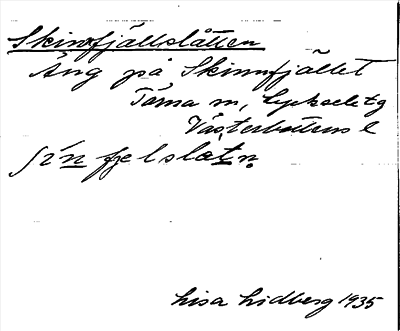 Skinnfjällslåtten
Äng på Skinnfjället
Tärna sn, Lycksele tg
Västerbottens l
ʃìnfjelslɔtn̥
Lisa Lidberg 1935